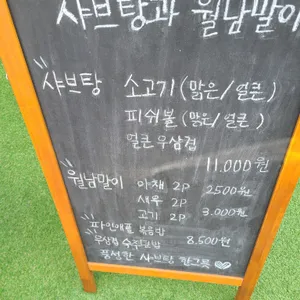 샤브탕과 월남말이
샤브탕 소고기 (맑은/얼큰)
피쉬볼 (맑은/얼큰)
얼큰 우삼겹
11,000원
월남말이 야채 2P 2500원
새우 2P
고기 2P 3,000원
파인애플 볶음밥
우삼겹 숙주덮밥 8,500원
풍성한 샤브탕 한그릇